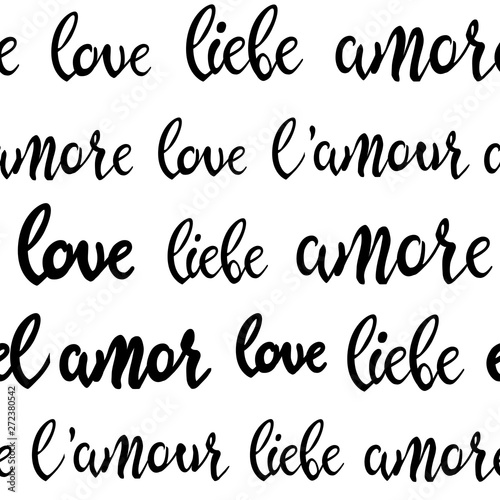 e love liebe amore
amore love l'amour a
love liebe amore
el amor love liebe e
e l'amour liebe amore
Adobe Stock | #272380542